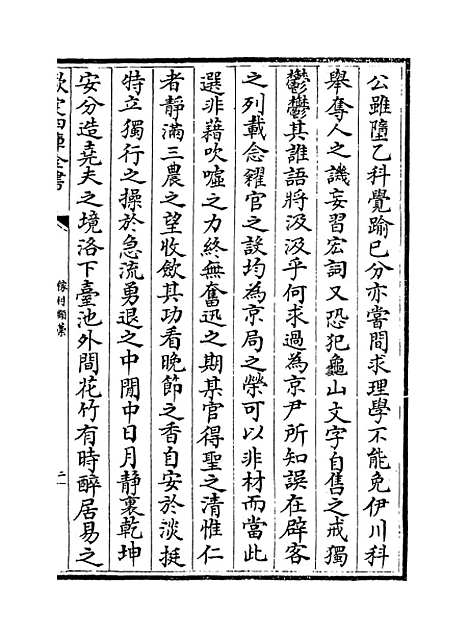 公雖墮乙科覺踰已分亦嘗間求理學不能免伊川科
舉奪人之譏妄習宏詞又恐犯龜山文字自售之戒獨
鬱鬱其誰語將汲汲乎何求過為京尹所知誤在辟客
之列載念糴官之設均為京局之榮可以非材而當此
選非藉吹噓之力終無奮迅之期某官得聖之清惟仁
者靜滿三農之望收歛其功看晚節之香自安於淡挺
特立獨行之操於急流勇退之中閒中日月靜裏乾坤
安分造堯夫之境洛下臺池外間花竹有時醉居易之
欽定四庫全書
像村類藁
二